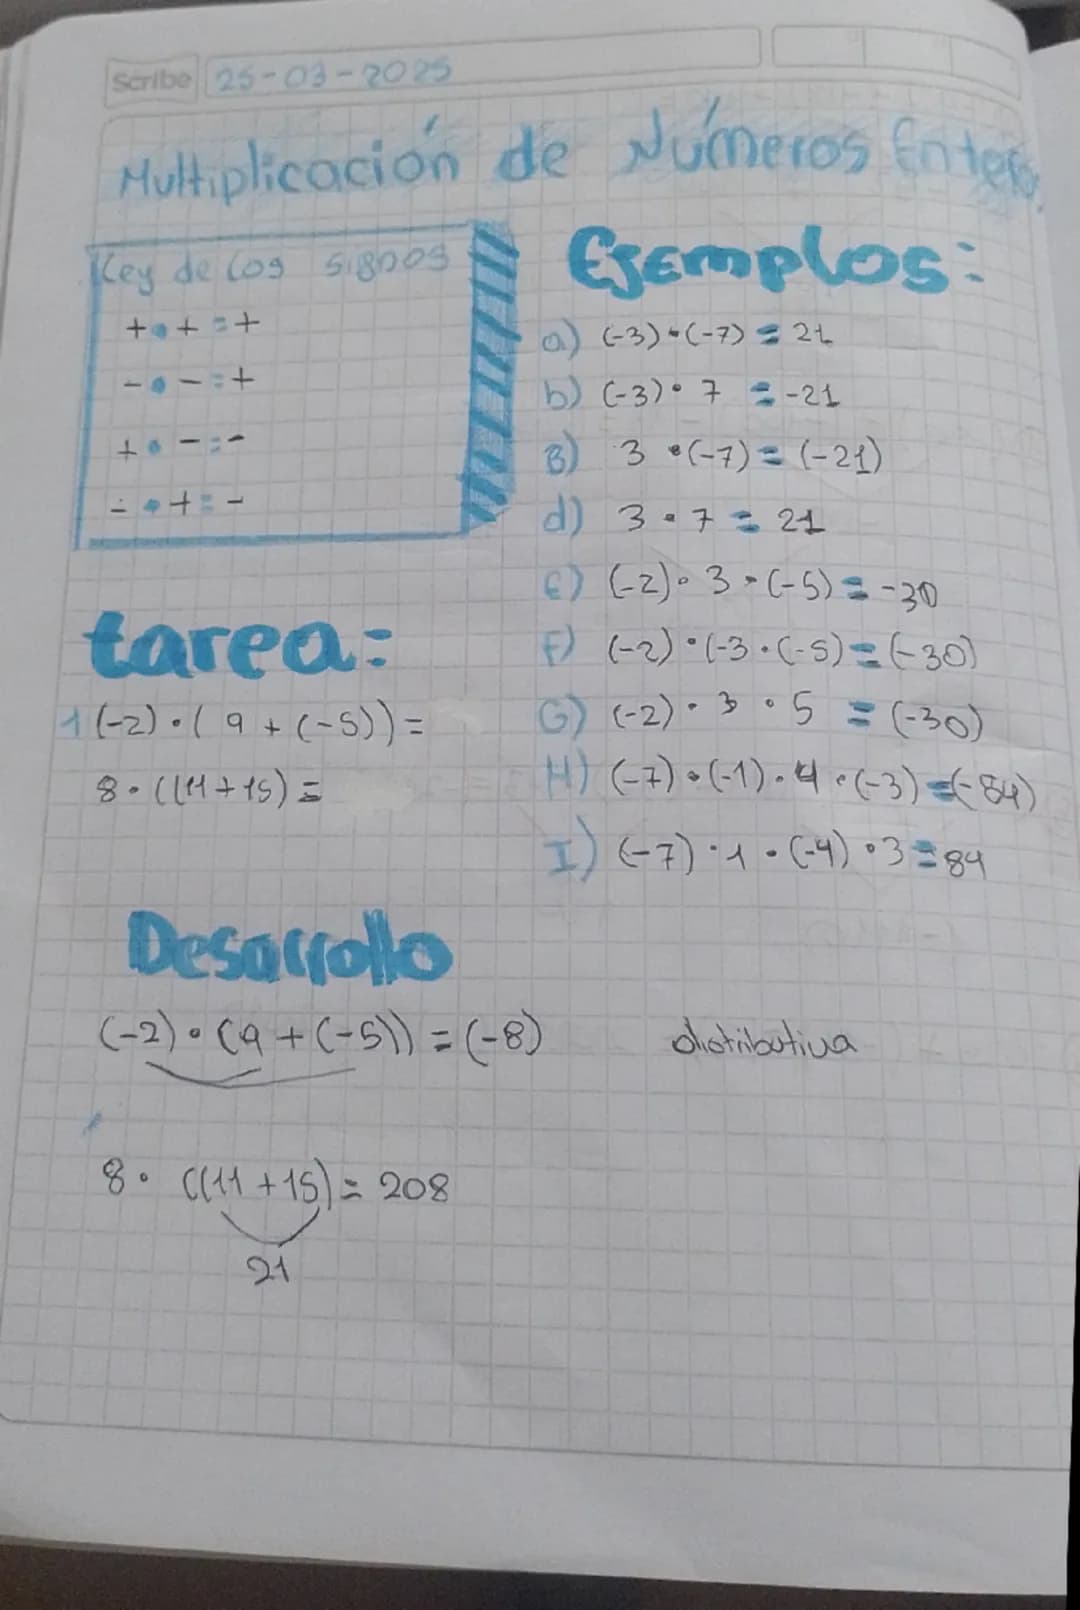 Scribe 25-03-2025
Multiplicación de Números Enteros
Ley de los signos
+•+=+
-•-=+
+•-=-
-•+=-
Ejemplos:
a) (-3)•(-7)=21
b) (-3)•7=-21
B) 3•(-7)=(-21)
d) 3•7=21
E) (-2)•3•(-5)=-30
F) (-2)•(-3•(-5)=(-30)
G) (-2)•3•5=(-30)
H) (-7)•(-1)•4•(-3)=(-84)
I) (-7)•1•(-4)•3=84
tarea:
1 (-2)•(9+(-5))=
8•((11+15)=
Desarrollo
(-2)•(9+(-5))=(-8) distributiva
8•((11+15)=208
21